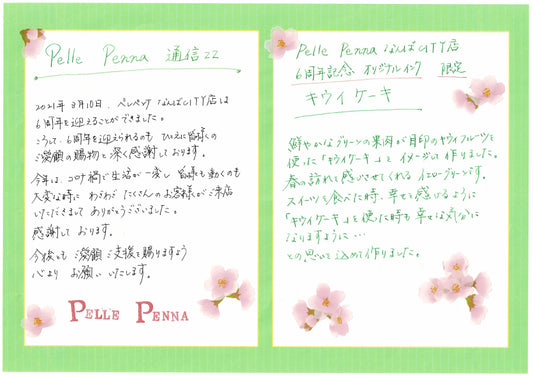 Pelle Penna 通信22
2021年3月10日、ペレペンナなんばCITY店は
6周年を迎えることができました。
こうして、6周年を迎えられるのも ひとえに皆様の
ご愛顧の賜物と深く感謝しております。
今年は、コロナ禍で生活が一変し 皆様も動くのも
大変な時に わざわざ たくさんのお客様がご来店
いただきまして ありがとうございました。
感謝しております。
今後も ご愛顧 ご支援を賜りますよう
心より お願い いたします。
PELLE PENNA
Pelle Penna なんばCITY店
6周年記念 オリジナルインク 限定
キウイケーキ
鮮やかなグリーンの果肉が目印のキウイフルーツを
使った「キウイケーキ」を イメージして作りました。
春の訪れを感じさせてくれる イエローグリーンです。
スイーツを食べた時、幸せを感じるように
「キウイケーキ」を使った時も 幸せな気分に
なりますように…
との思いを込めて作りました。